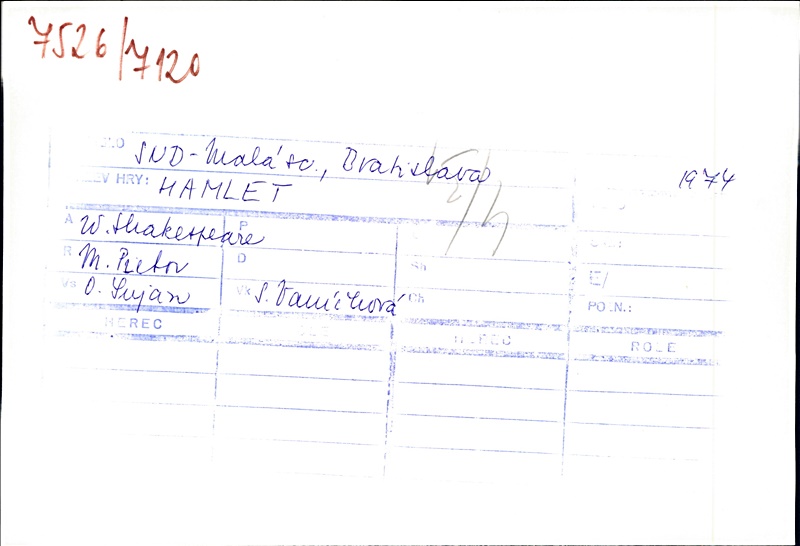 7526/7120
SND-Malá sc., Bratislava
1974
EV HRY: HAMLET
A W. Shakespeare P
R M. Pietor D Sh
Vs O. Šujan Vk S. Vanichová Ch
E/
PO.N.:
HEREC HEREC ROLE